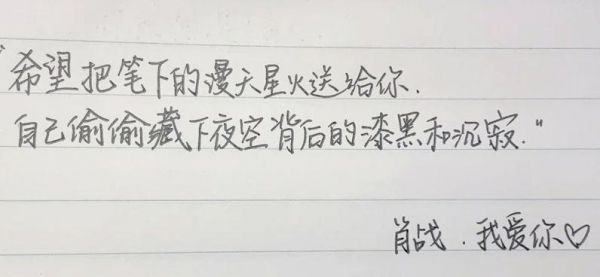 "希望把笔下的漫天星火送给你.
自己偷偷藏下夜空背后的漆黑和沉寂."
肖战.我爱你♡